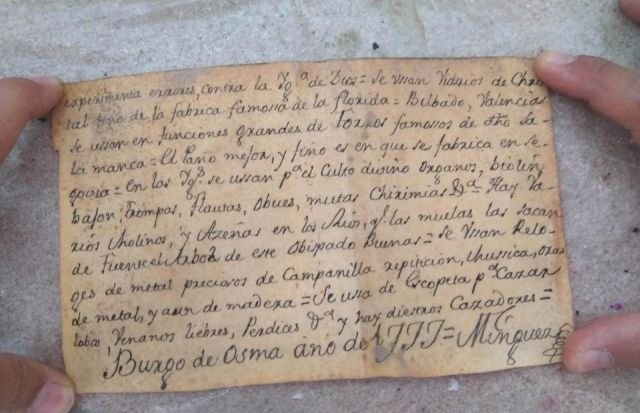 experimenta errores, contra la Ygª de Dios = Se vssan Vidrios de Chris
tal fino de la fabrica famossa de la florida = Bilbado, Valencia
Se vssan en funciones grandes de Toros famosos de dho Sa-
la manca = El Pano mejor, y fino es en que se fabrica en Se-
govia = En las Ygs. se ussan pª el Culto divino Organos, biolin,
bajon, Trompas, Flautas, Obues, mutas Chirimias &ª = Hay Va-
rios Molinos, y Azeñas en los Rios, q las muelas las sacan
de Fuente el Arbol de este Obispado Buenas = Se Vsan Relo-
ges de metal preciosos de Campanilla repitición, Mussica, otros
de metal, y aun de madera = Se ussa de Escopeta pª Cazar
lobos, Venanos liebres, Perdices &ª y hay diestros Cazadores =
Burgo de Osma año de 1777 = Mingvez